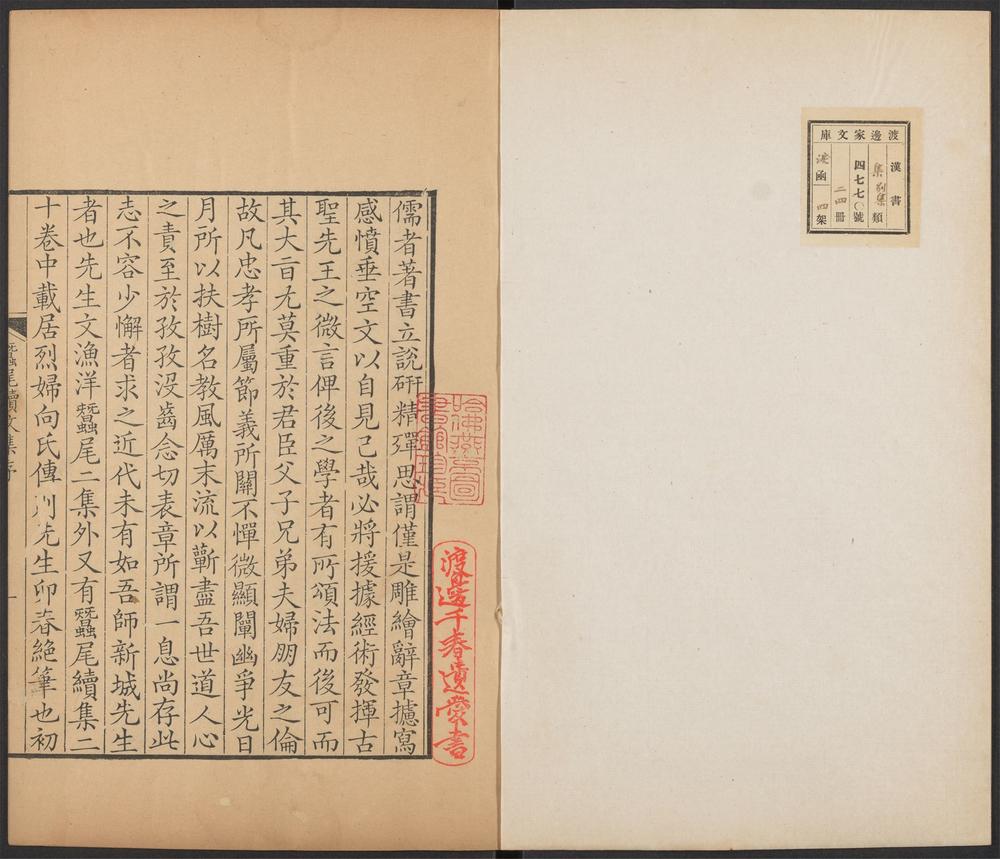 渡邊家文庫
漢書
集別集類
四七七〇號
二四冊
函
四架
哈佛燕京圖
書館珍藏
渡邊千春遺愛書
儒者著書立說研精殫思謂僅是雕繪辭章攄寫
感憤垂空文以自見己哉必將援據經術發揮古
聖先王之微言俾後之學者有所頌法而後可而
其大旨尤莫重於君臣父子兄弟夫婦朋友之倫
故凡忠孝所屬節義所關不憚微顯闡幽爭光日
月所以扶樹名教風厲末流以蘄盡吾世道人心
之責至於孜孜沒齒念切表章所謂一息尚存此
志不容少懈者求之近代未有如吾師新城先生
者也先生文漁洋蠶尾二集外又有蠶尾續集二
十卷中載居烈婦向氏傳則先生卯春絕筆也初
蠶尾續文集序
一